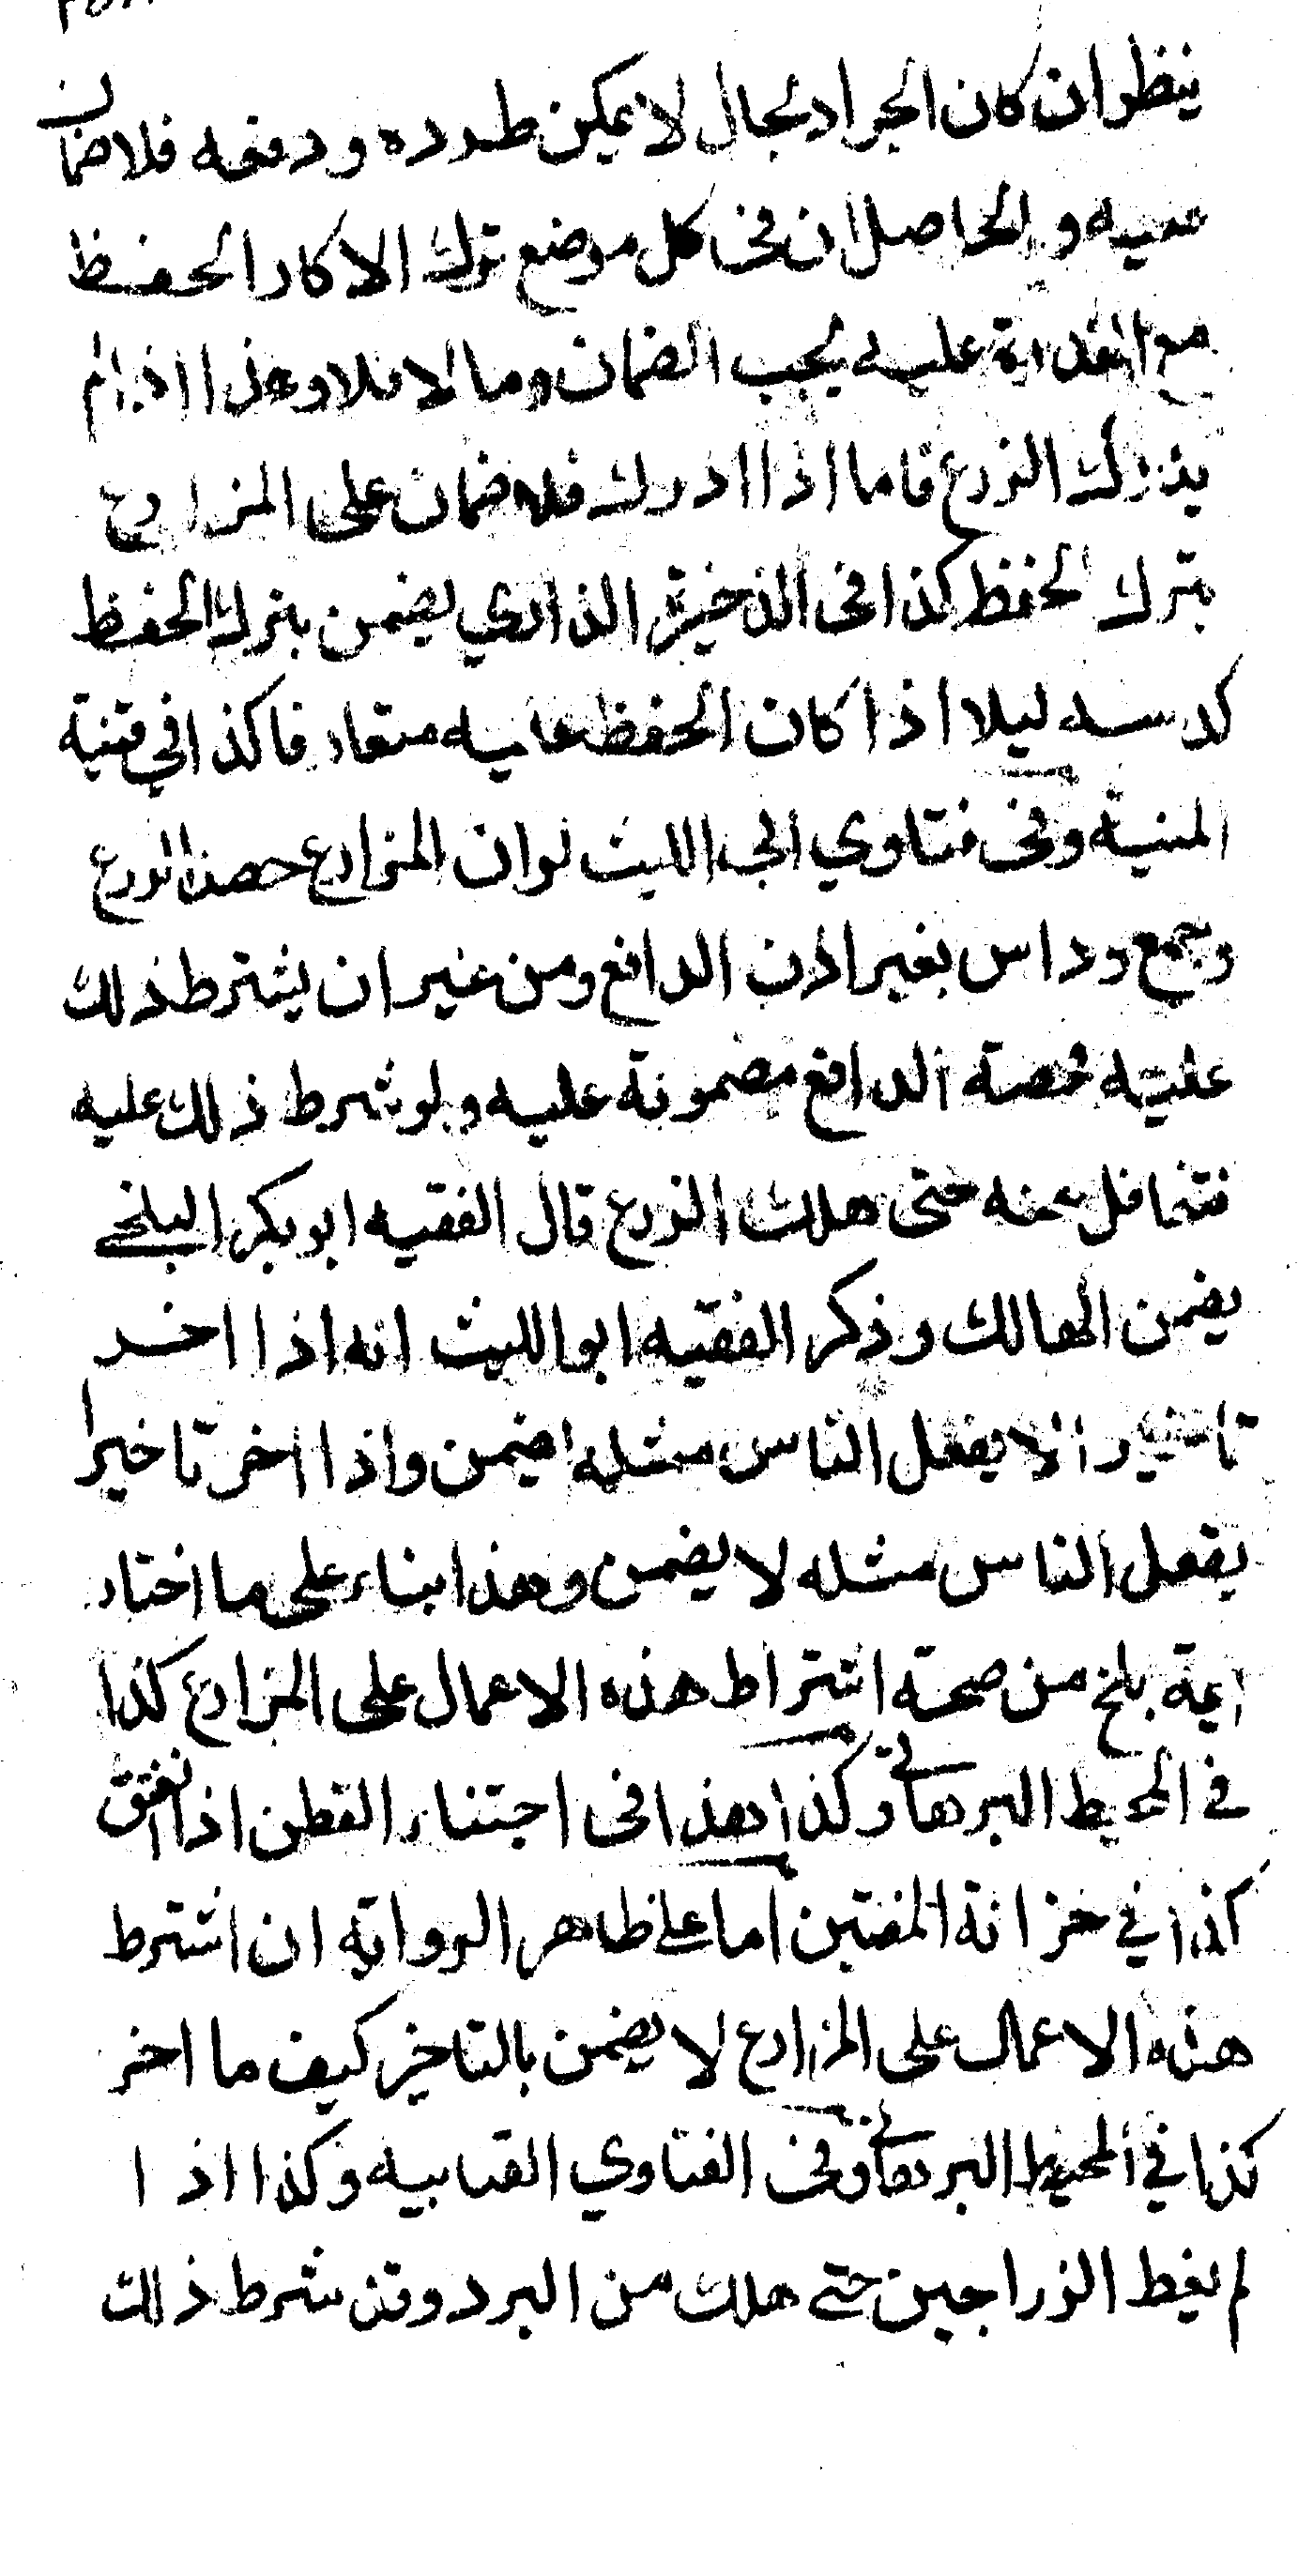 ينظر ان كان الجراد بحال لا يمكن طرده ودفعه فلا ضمان
عليه والحاصل ان في كل موضع ترك الاكار الحفظ
مع القدرة عليه يجب الضمان وما لا فلا وهذا اذا لم
يدرك الزرع فاما اذا ادرك فلا ضمان على المزارع
بترك الحفظ كذا في الذخيرة الذاري يضمن بترك الحفظ
كدسه ليلا اذا كان الحفظ عليه متعارفا كذا في قنية
المنية وفي فتاوي ابي الليث لو ان المزارع حصد الزرع
وجمع وداس بغير اذن الدافع ومن غير ان يشترط ذلك
عليه فحصة الدافع مضمونة عليه ولو شرط ذلك عليه
فتغافل عنه حتى هلك الزرع قال الفقيه ابو بكر البلخي
يضمن الهالك وذكر الفقيه ابو الليث انه اذا اخر
تاخيرا لا يفعل الناس مثله يضمن واذا اخر تاخيرا
يفعل الناس مثله لا يضمن وهذا بناء على ما اختار
ايمة بلخ من صحة اشتراط هذه الاعمال على المزارع كذا
في المحيط البرهاني وكذا هذا في اجتناء القطن اذا انفتق
كذا في خزانة المفتين اما على ظاهر الرواية ان اشترط
هذه الاعمال على المزارع لا يضمن بالتاخير كيف ما اخر
كذا في المحيط البرهاني وفي الفتاوي العتابيه وكذا اذا
لم يغط الزراجين حتى هلك من البرد وقد شرط ذلك